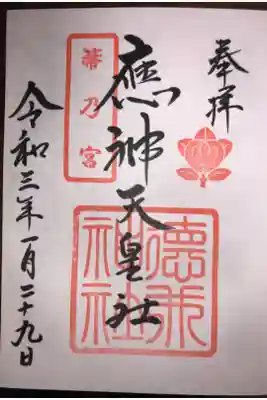 奉拝
應神天皇社
乃宮
神社
令和三年一月二十九日